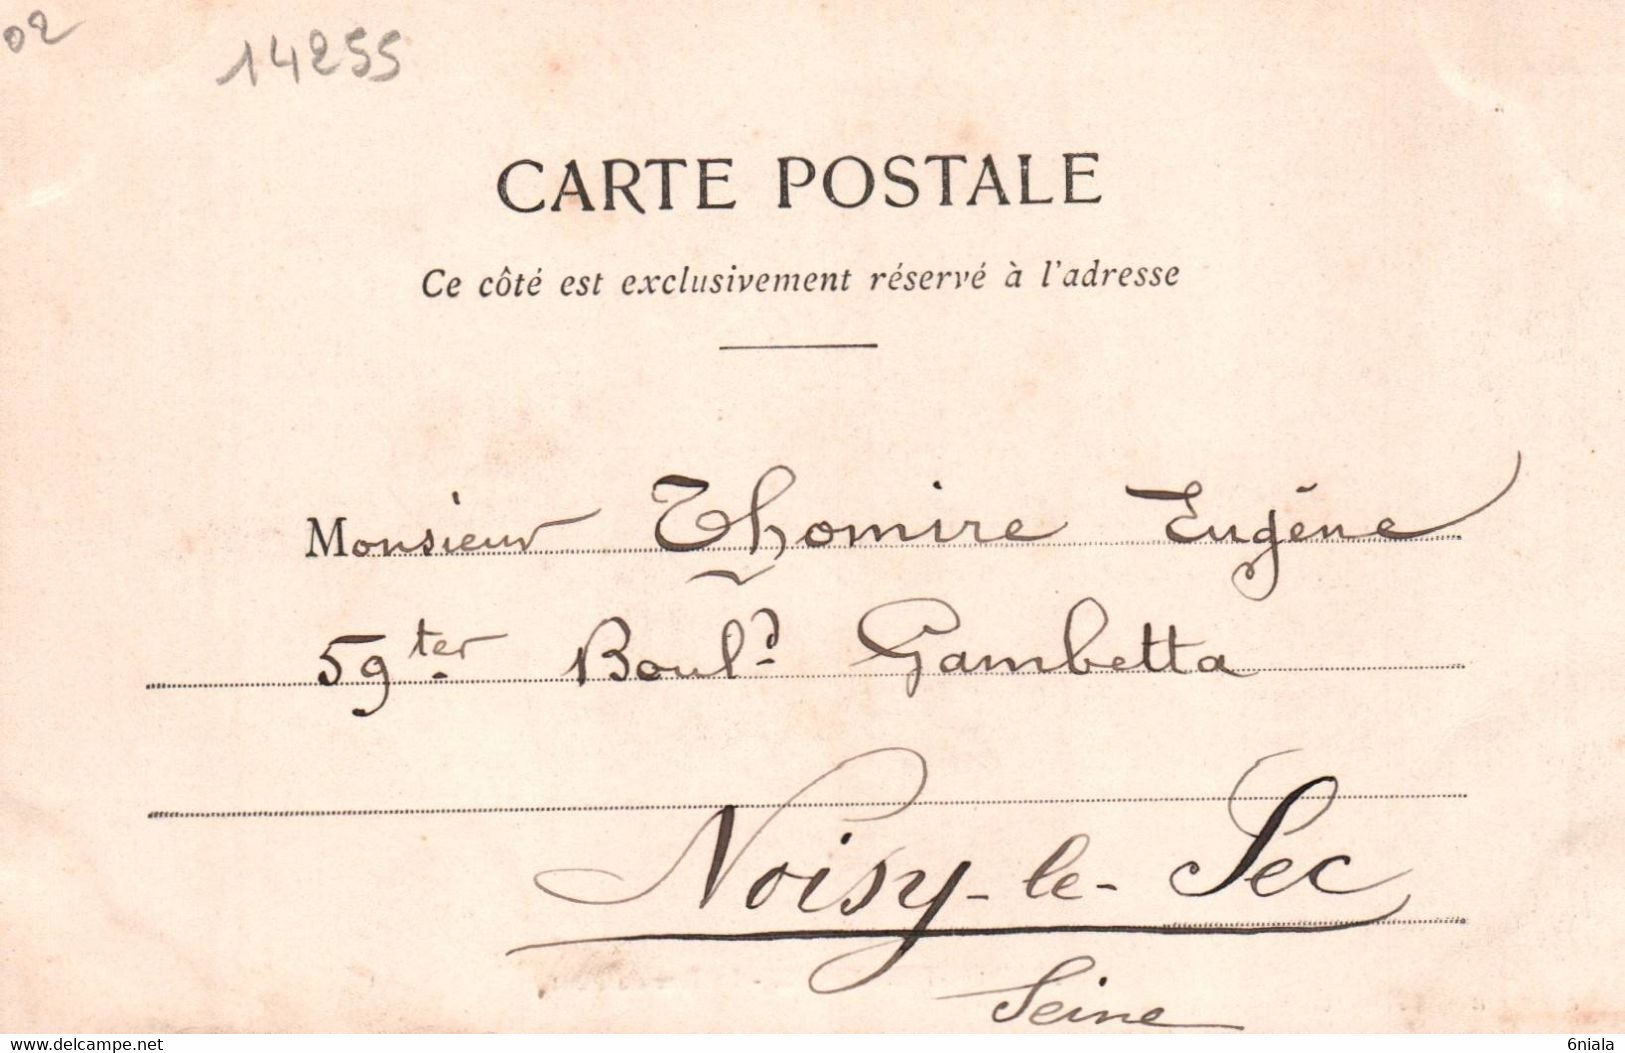 02
14255
CARTE POSTALE
Ce côté est exclusivement réservé à l'adresse
Monsieur Thomire Eugène
59 ter Boul.d Gambetta
Noisy-le-Sec
Seine
www.delcampe.net
6niala